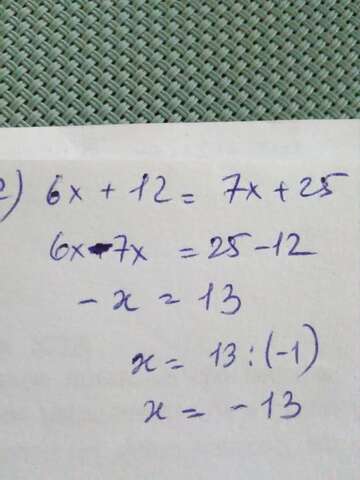 e) 6x + 12 = 7x + 25
6x - 7x = 25 - 12
- x = 13
x = 13 : (-1)
x = - 13